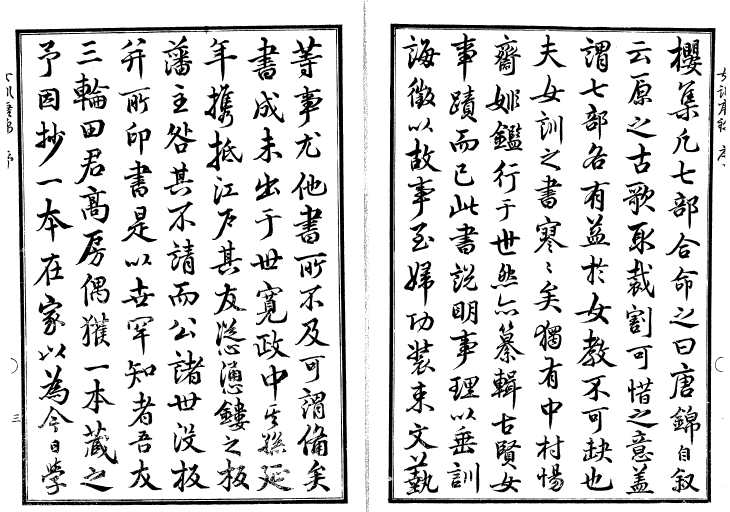 櫻集凡七部合命之曰唐錦自叙
云原之古歌取裁割可惜之意蓋
謂七部各有益於女教不可缺也
夫女訓之書寥〻矣獨有中村惕
齋姫鑑行于世然亦纂輯古賢女
事蹟而已此書説明事理以垂訓
誨徴以故事至婦功装束文藝
等事尤他書所不及可謂備矣
書成未出于世寛政中其孫延
年携抵江戸其友慫慂鏤之板
藩主咎其不請而公諸世没板
并所印書是以世罕知者吾友
三輪田君高房偶獲一本蔵之
予因抄一本在家以為今日学
女訓唐錦 序
三